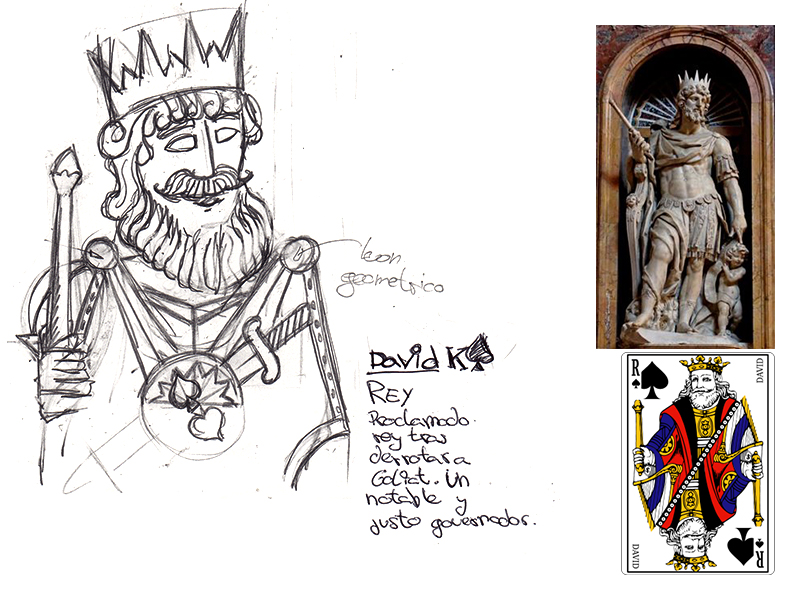 leon
geometrico
David K♠
REY
Proclamado
rey tras
derrotar a
Goliat. Un
notable y
justo governador.
R
DAVID
DAVID
R